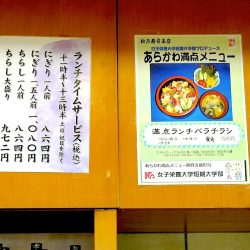 ランチタイムサービス(税込)
十一時半〜十三時半 土日祝日を除く
にぎり 一人前 八六四円
にぎり 一.五人前 一〇八〇円
ちらし 一人前 八六四円
ちらし 大盛り 九七二円
女子栄養大学短期大学部プロデュース
あらかわ満点メニュー
満点ランチバラチラシ
女子栄養大学短期大学部